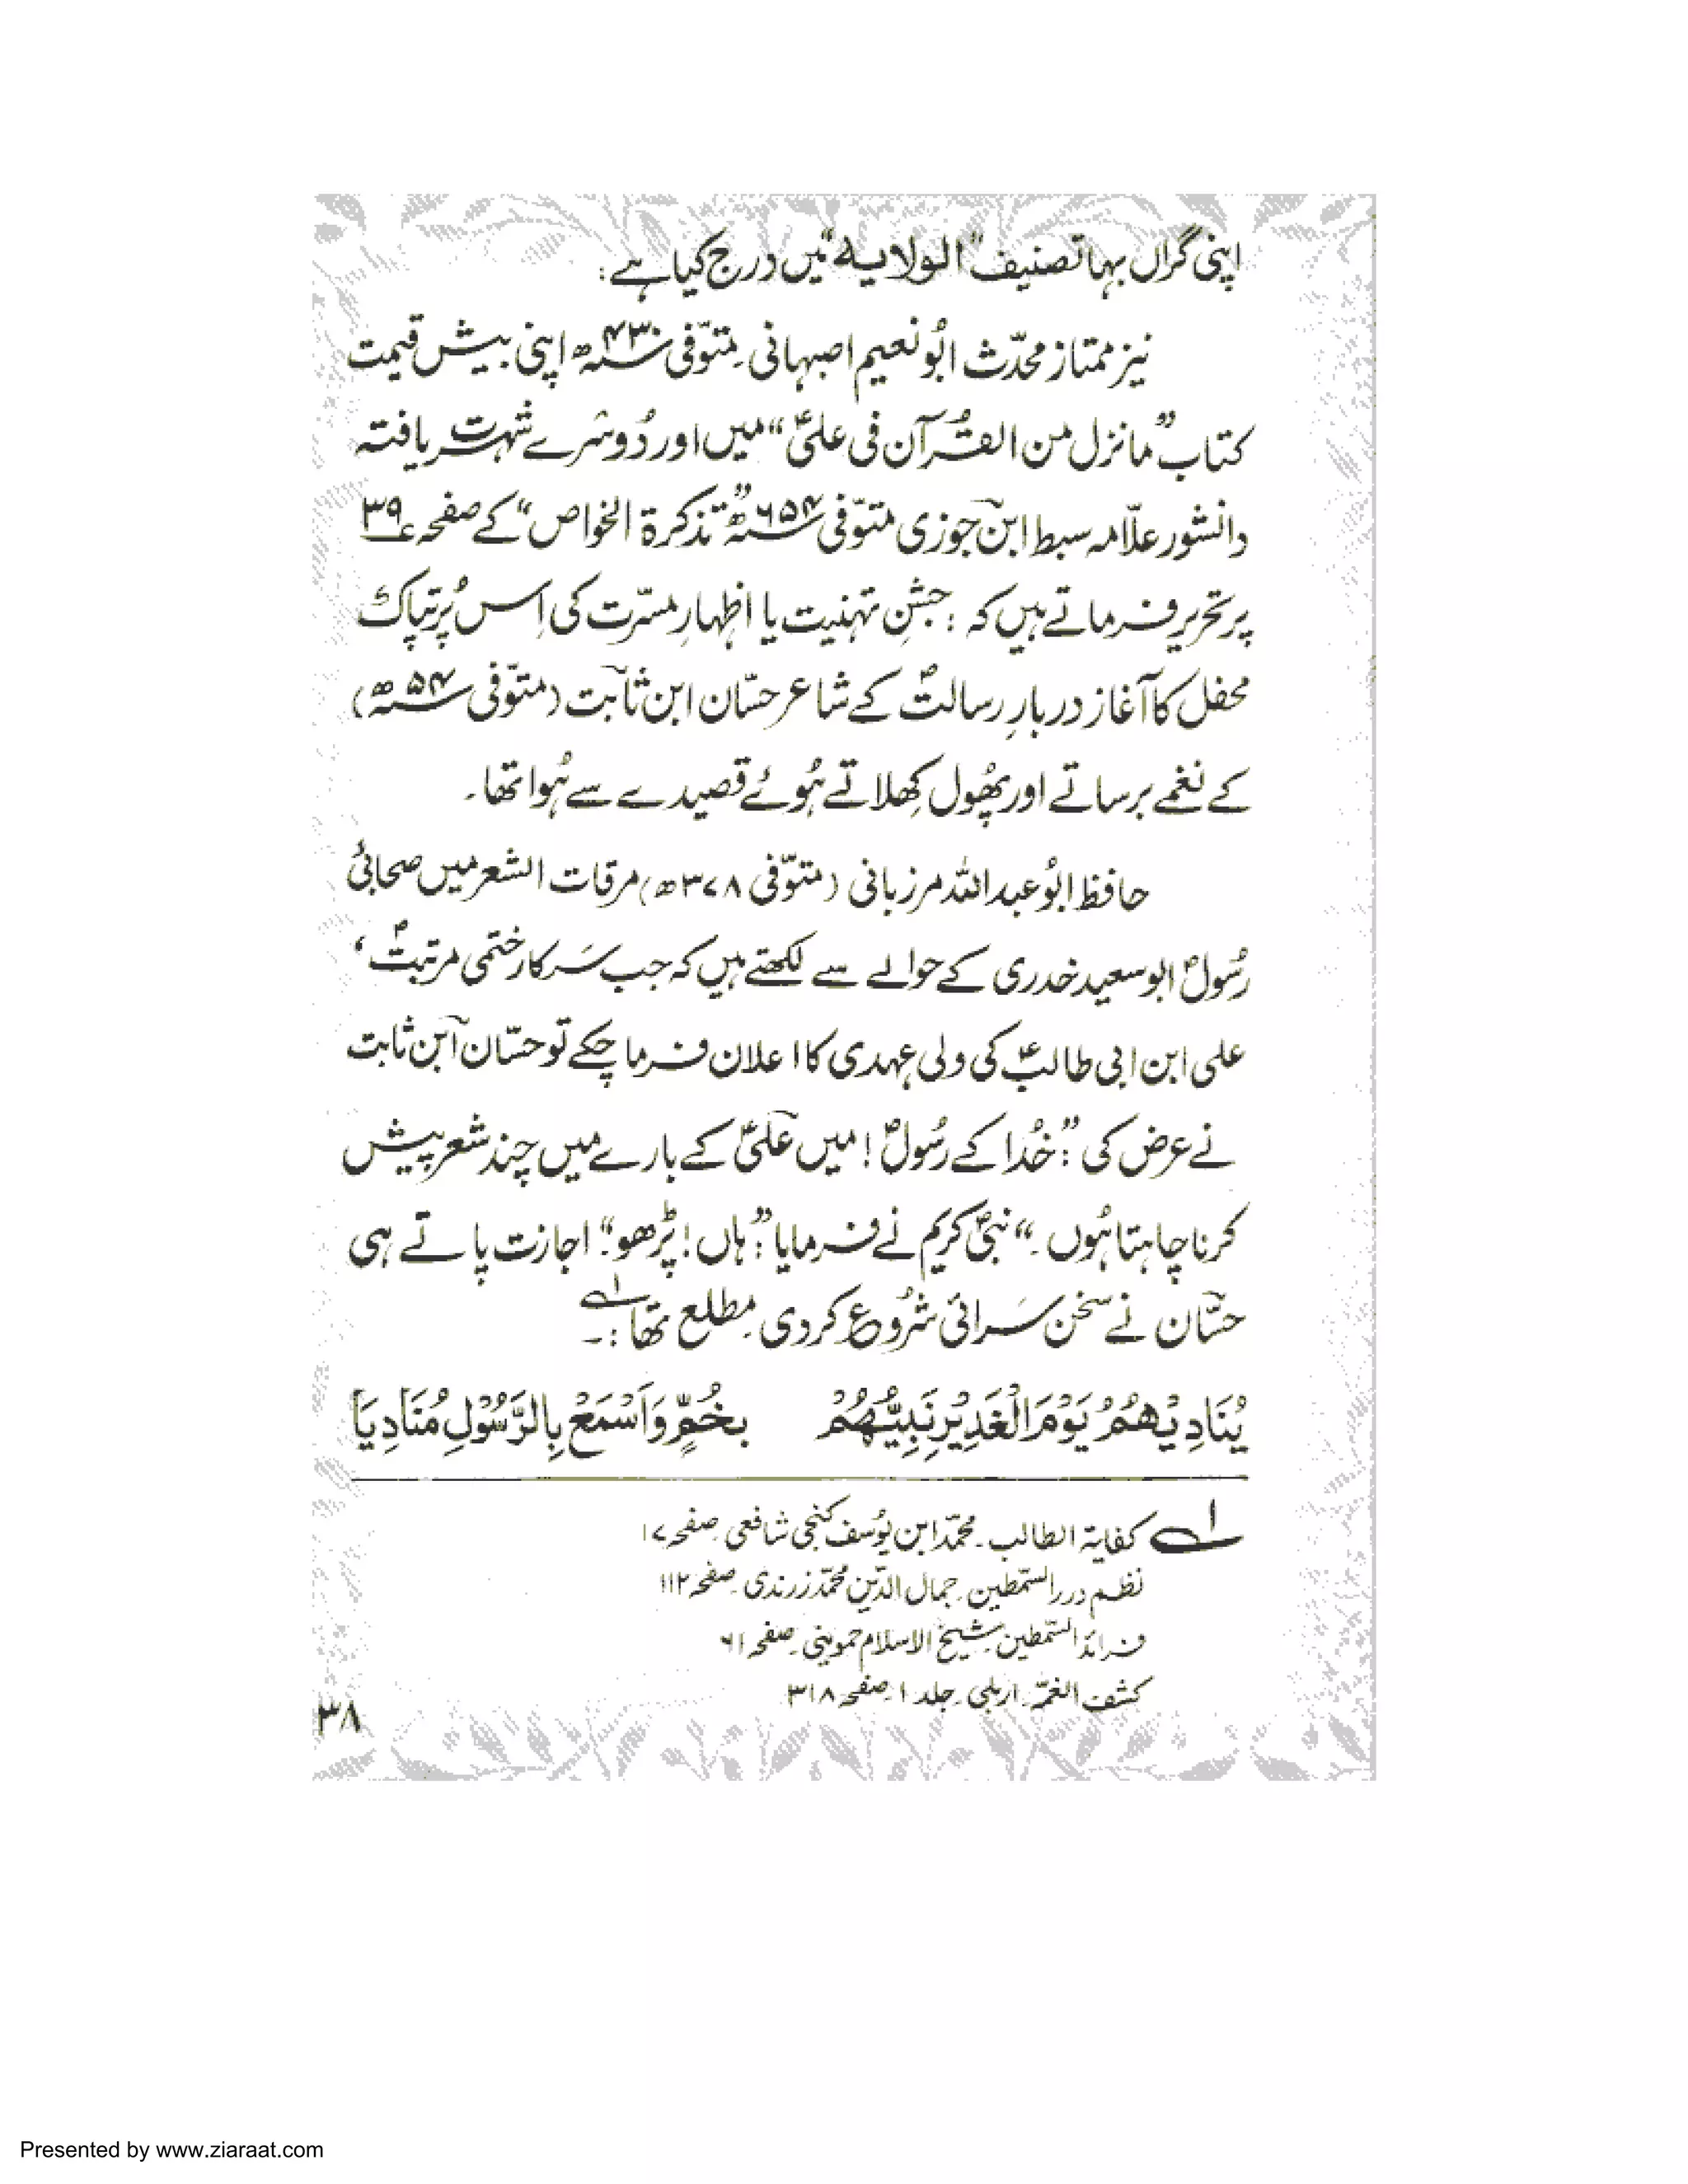 اپنی گراں بہا تصنیف "الولایہ" میں درج کیا ہے :
نیز ممتاز محدّث ابُو نعیم اصبہانی۔ متوّفی ۴۳۰ھ اپنی بیش قیمت
کتاب "مانزل من القرآن فی علیؑ" میں اور دُوسرے شہرت یافتہ
دانشور علّامہ سبط ابن جوزی متوّفی ۶۵۴ھ "تذکرۃ الخواص" کے صفحہ ۳۹
پر تحریر فرماتے ہیں کہ : جشنِ تہنیت یا اظہارِ مسرّت کی اِس پُرتپاک
محفل کا آغاز دربارِ رسالتؐ کے شاعر حسّان ابن ثابت (متوّفی ۵۴ھ)
کے نغمے برساتے اور پھُول کھِلاتے ہُوئے قصیدے سے ہُوا تھا۔
حافظ ابُو عبداللہ مرزبانی (متوّفی ۳۷۸ھ) مرقات الشعر میں صحابیُ
رسُولؐ ابو سعید خدری کے حوالے سے لکھتے ہیں کہ جب سَرکار ختمی مرتبتؐ ،
علی ابن ابی طالبؑ کی ولی عہدی کا اعلان فرما چکے تو حسّان ابن ثابت
نے عرض کی : "خُدا کے رسُولؐ ! میں علیؑ کے بارے میں چند شعر پیش
کرنا چاہتا ہُوں۔" نبیؐ کریم نے فرمایا : "ہاں ! پڑھو"۔ اجازت پاتے ہی
حسّان نے سخن سَرائی شرُوع کر دی۔ مطلع تھا ۱ : ۔
یُنَادِیْھِمُ یَوْمَ الْغَدِیْرِ نَبِیُّھُمْ بِخُمٍّ وَاَسْمَعْ بِالرَّسُوْلِ مُنَادِیَا
۱ کفایۃ الطالب۔ محمّد ابن یُوسف گنجی شافعی۔ صفحہ ۱۷
نظم درر السّمطین۔ جمال الدّین محمّد زرندی۔ صفحہ ۱۱۲
فرائد السّمطین۔ شیخ الاسلام حموینی۔ صفحہ ۶۱
کشف الغمّہ۔ اربلی۔ جلد ۱۔ صفحہ ۳۱۸
۳۸
Presented by www.ziaraat.com